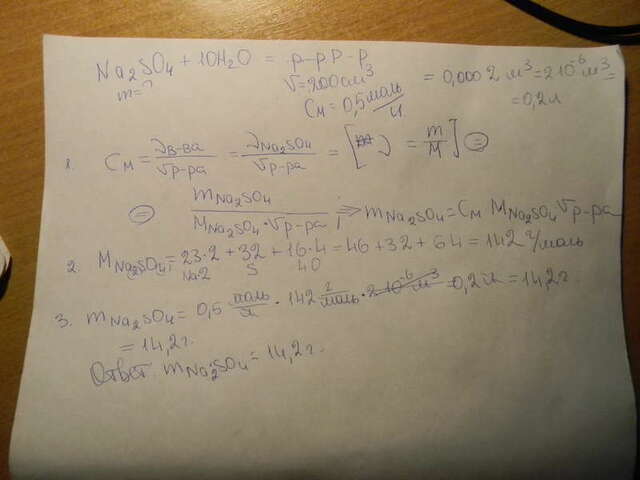 Na₂SO₄ + 10H₂O = р-р Р-р
m=? V=200см³ = 0,0002 м³ = 2·10⁻⁶ м³ =
См = 0,5 моль/л = 0,2л
1. См = νв-ва/Vр-ра = νNa₂SO₄/Vр-ра = [ν = m/M] =
= mNa₂SO₄/MNa₂SO₄·Vр-ра ⇒ mNa₂SO₄ = См MNa₂SO₄ Vр-ра
2. MNa₂SO₄ = 23·2 + 32 + 16·4 = 46 + 32 + 64 = 142 г/моль
Na·2 S 4O
3. mNa₂SO₄ = 0,5 моль/л · 142 г/моль · 2·10⁻⁶ м³ 0,2 л = 14,2г.
= 14,2г.
Ответ: mNa₂SO₄ = 14,2г.